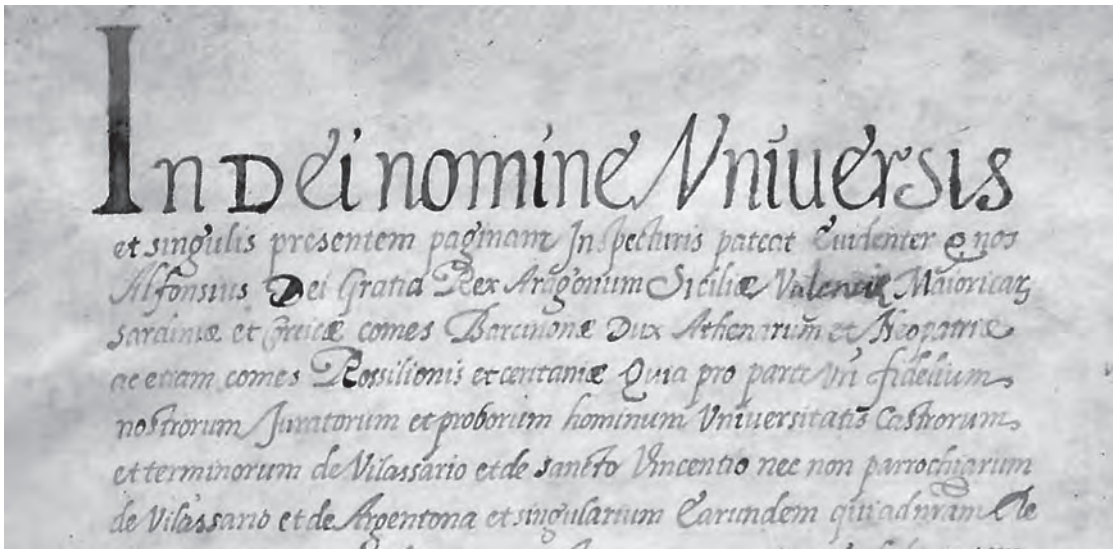 In Dei nomine Vniuersis
et singulis presentem paginam Inspecturis pateat Euidenter q nos
Alfonsius Dei Gratia Rex Aragonum Siciliæ Valenciæ Maioricaꝝ
sardiniæ et Corsicæ comes Barcinonæ Dux Athenarum et Neopatriæ
ac etiam comes Rossilionis et ceritaniæ Quia pro parte vri fidelium
nostrorum Juratorum et proborum hominum Vniuersitatis Castrorum
et terminorum de Vilassario et de sancto Vincentio nec non parrochiarum
de Vilassario et de Argentona et singularium Earundem qui ad nram